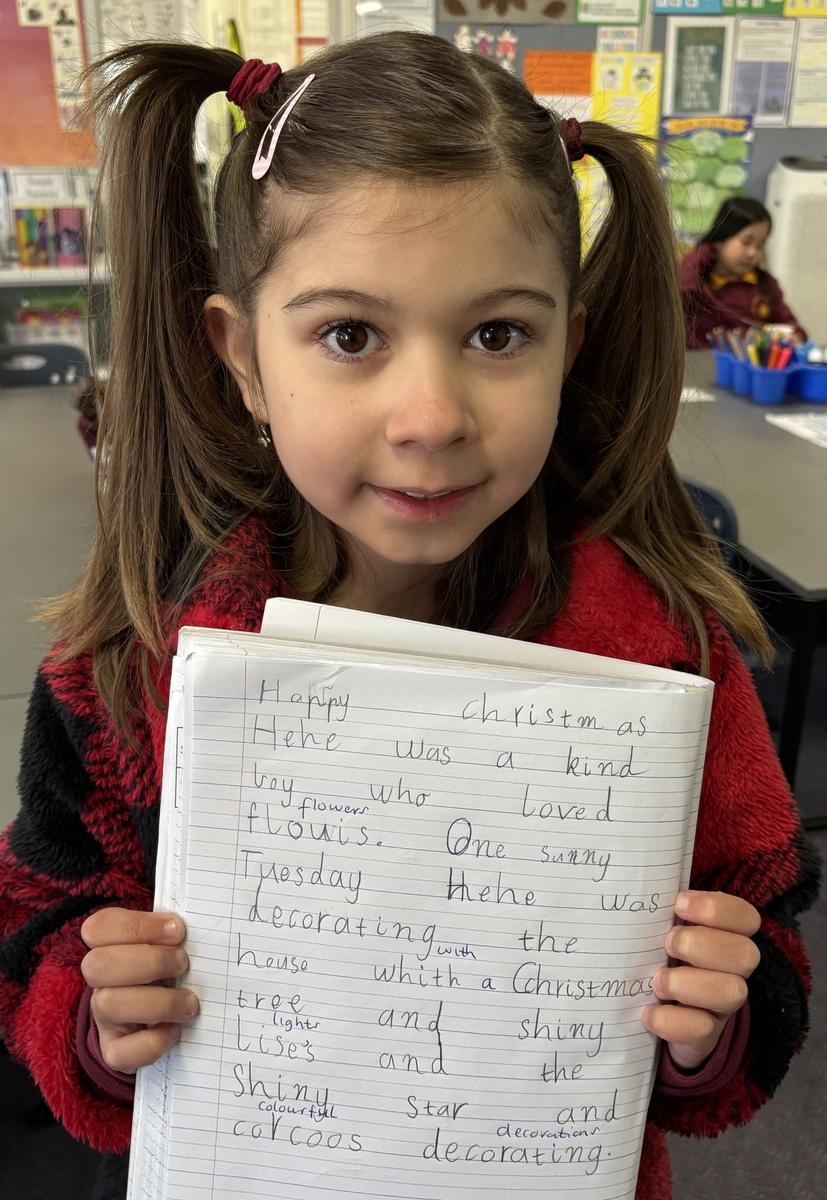 Happy christmas
Hehe was a kind
boy who loved
flowers
flouis. One sunny
Tuesday Hehe was
decorating the
with
house whith a Christmas
tree and shiny
lights
Lise's and the
Shiny star and
colourful decorations
corcoos decorating.